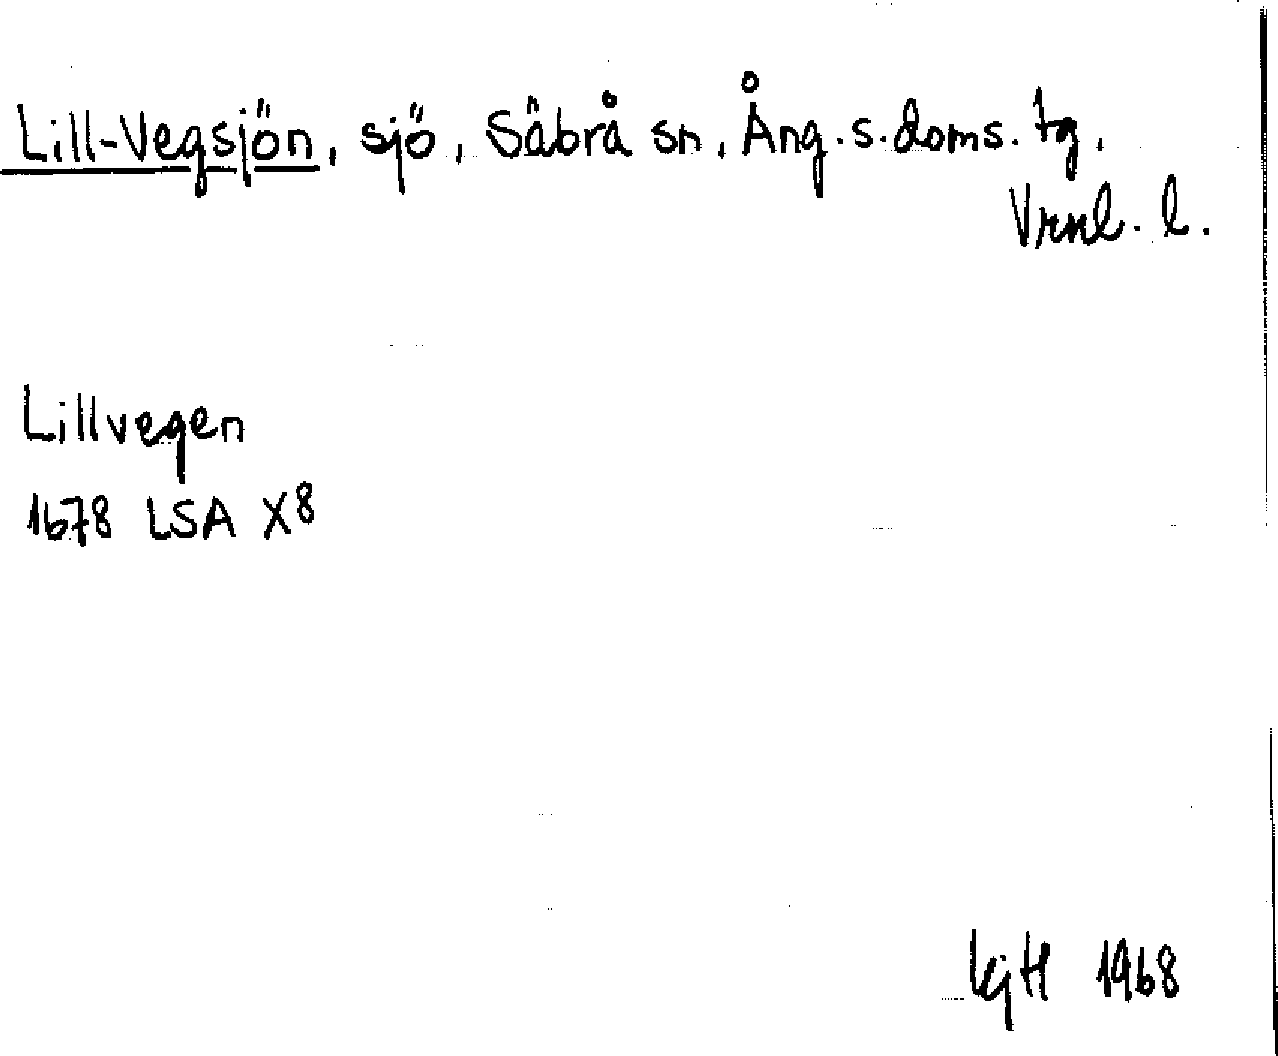 Lill-Vegsjön, sjö, Säbrå sn, Ång. s. doms. tg,
Vrnl. l.
Lillvegen
1678 LSA X8
1968